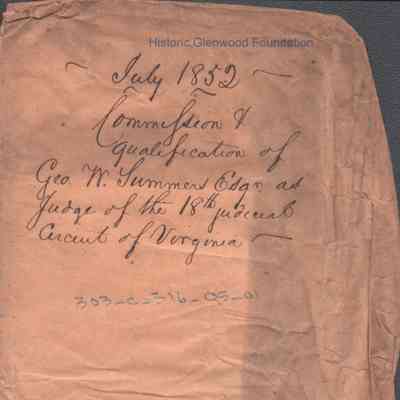 Historic Glenwood Foundation
~ July 1852 ~
Commission &
qualification of
Geo. W. Summers Esqr. as
Judge of the 18th judicial
Circuit of Virginia ~
303-C-316-05-01